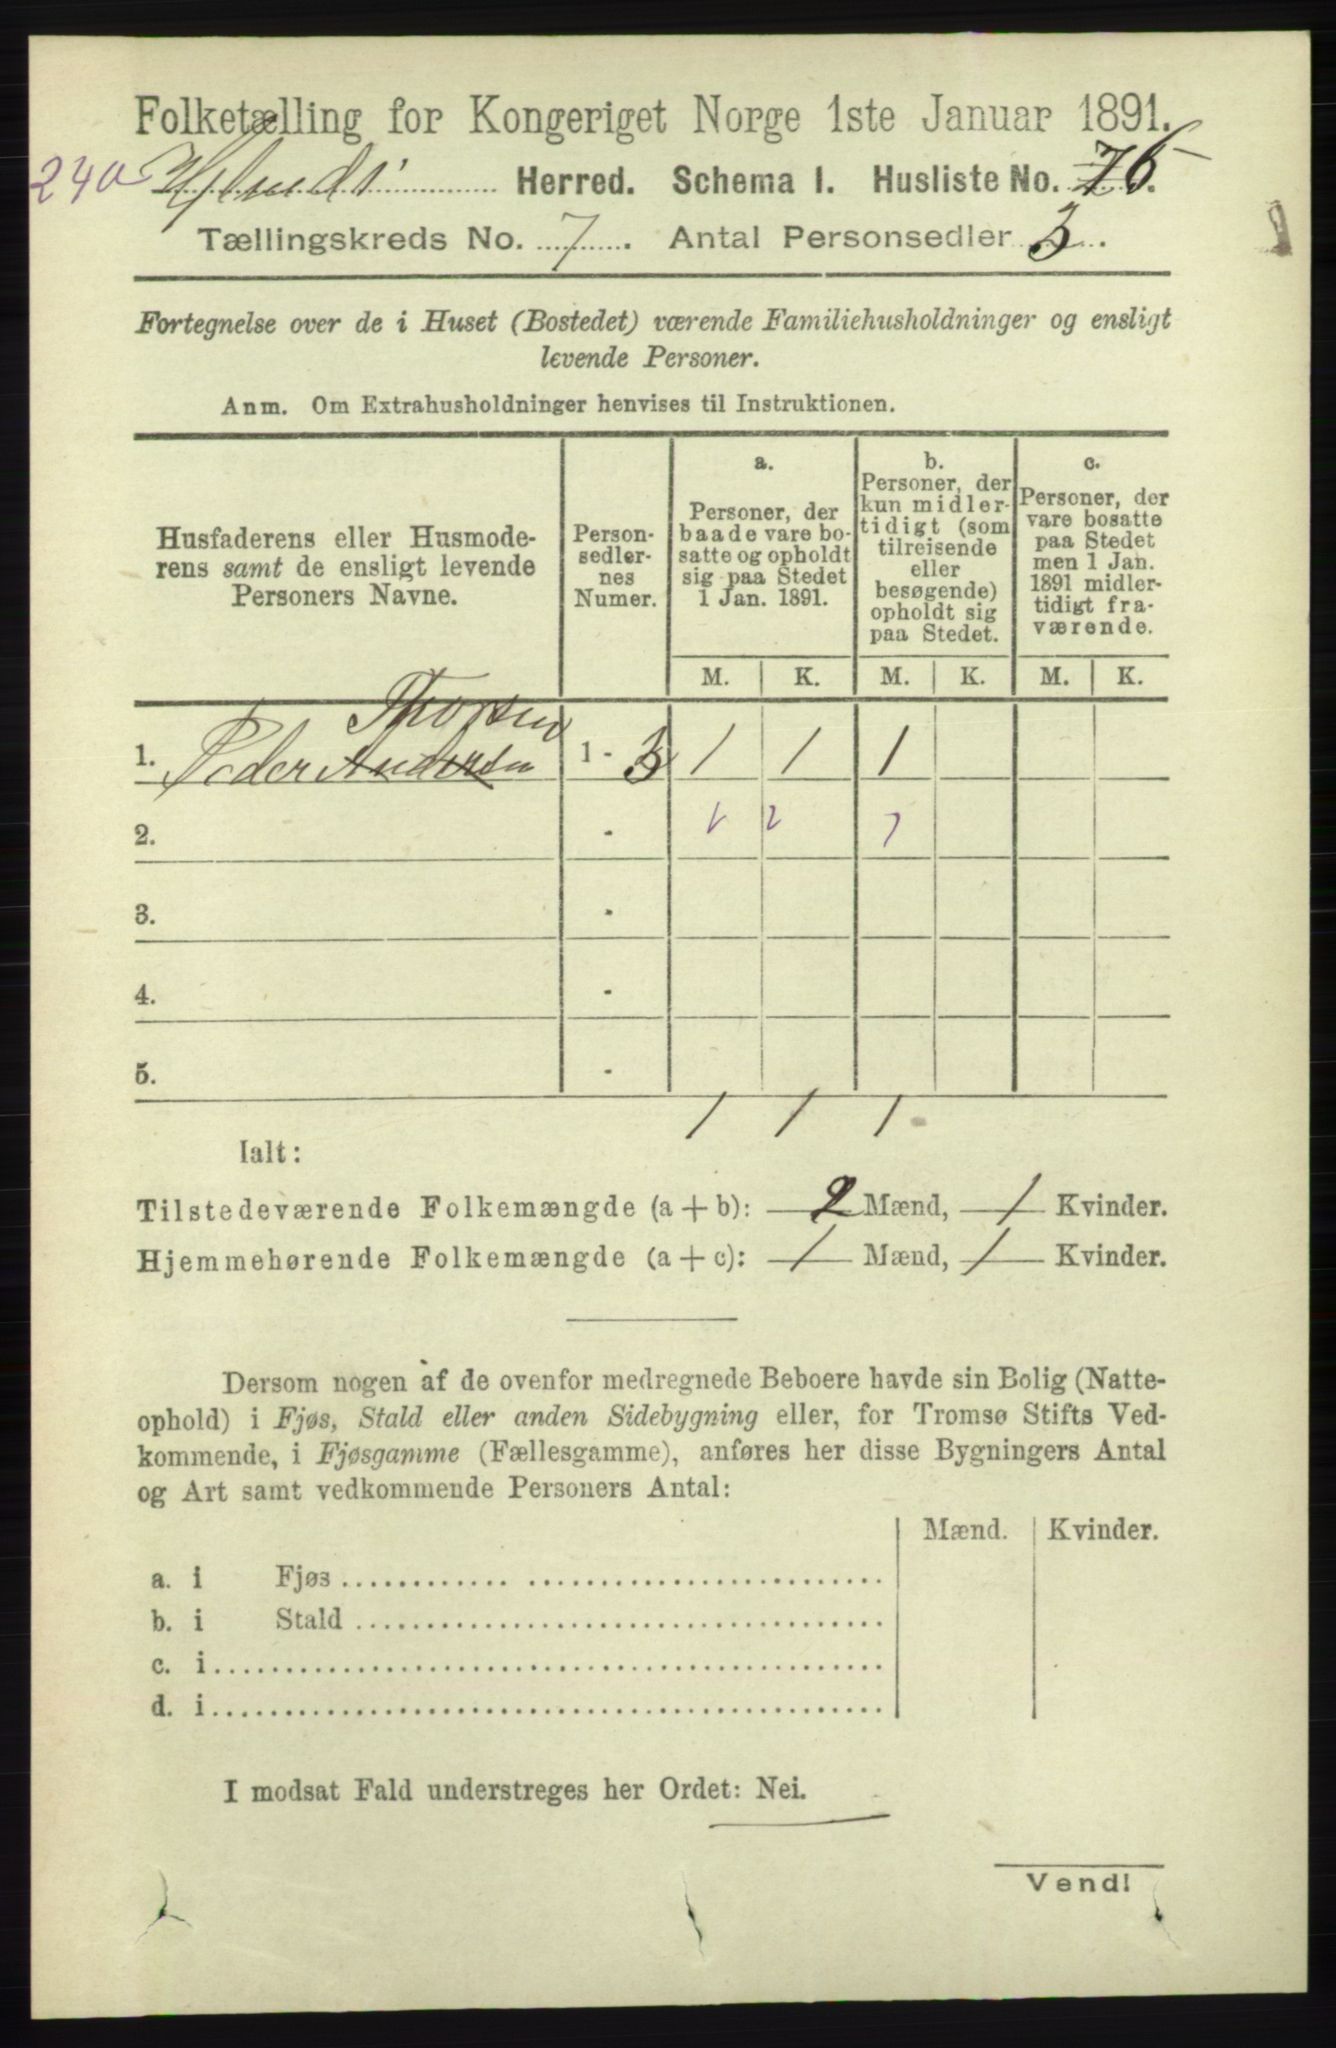 Folketælling for Kongeriget Norge 1ste Januar 1891.
240 Herred. Schema I. Husliste No.
Tællingskreds No. 7. Antal Personsedler 3.
Fortegnelse over de i Huset (Bostedet) værende Familiehusholdninger og ensligt
levende Personer.
Anm. Om Extrahusholdninger henvises til Instruktionen.
Husfaderens eller Husmode-
rens samt de ensligt levende
Personers Navne.
Person-
sedler-
nes
Numer.
a.
Personer, der
baade vare bo-
satte og opholdt
sig paa Stedet
1 Jan. 1891.
b.
Personer, der
kun midler-
tidigt (som
tilreisende
eller
besøgende)
opholdt sig
paa Stedet.
c.
Personer, der
vare bosatte
paa Stedet
men 1 Jan.
1891 midler-
tidigt fra-
værende.
M. K. M. K. M. K.
Thorsen
1. Peder Andersen 1 - 3 1 1 1
2. -
3. -
4. -
5. -
1 1 1
Ialt:
Tilstedeværende Folkemængde (a + b): 2 Mænd, 1 Kvinder.
Hjemmehørende Folkemængde (a + c): 1 Mænd, 1 Kvinder.
Dersom nogen af de ovenfor medregnede Beboere havde sin Bolig (Natte-
ophold) i Fjøs, Stald eller anden Sidebygning eller, for Tromsø Stifts Ved-
kommende, i Fjøsgamme (Fællesgamme), anføres her disse Bygningers Antal
og Art samt vedkommende Personers Antal:
Mænd. Kvinder.
a. i Fjøs
b. i Stald
c. i
d. i
I modsat Fald understreges her Ordet: Nei.
Vend!